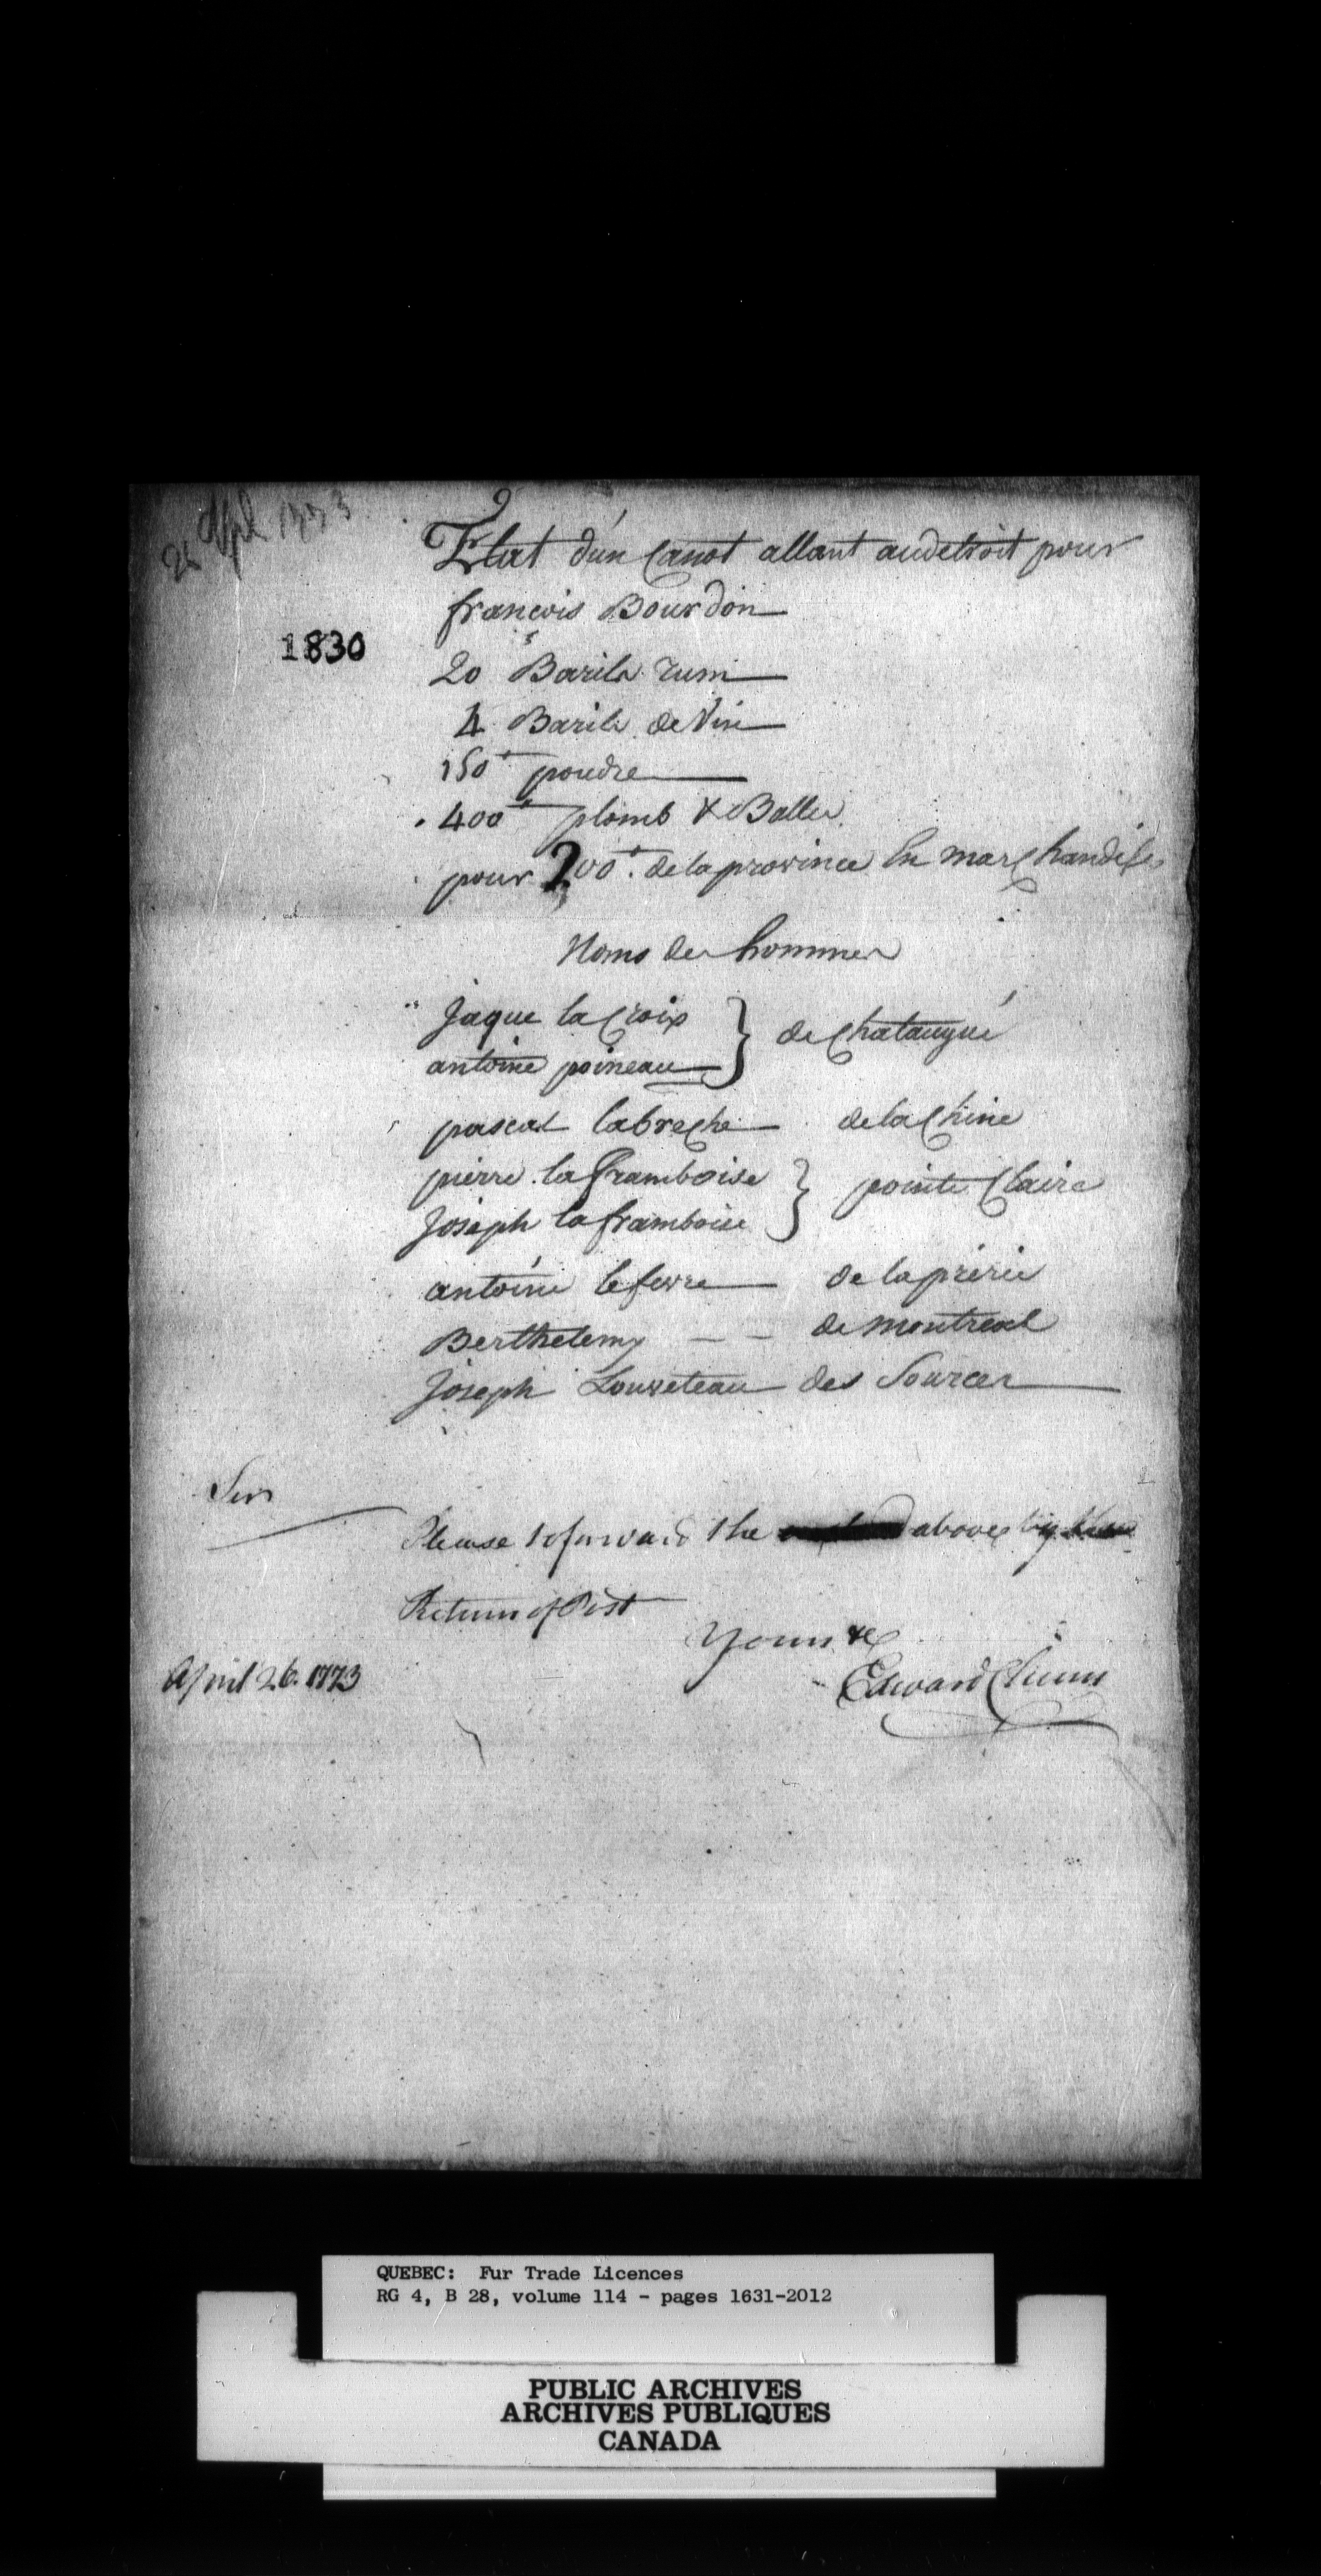 26 Apl 1773
Etat d'un Canot allant audetroit pour
francois Bourdon
1830
20 Barils rum
4 Barils de Vin
150# poudre
400# plomb & Balles
pour 200#. de la province En marchandises
Noms des hommes
Jaque la Croix
antoine poineau } de Chataugué
pascal labreche de la Chine
pierre la framboise
Joseph la framboise } pointe Claire
antoine lefevre de la prérie
Berthelemy – – de montreal
Joseph Louveteau des Sources
Sir
Please to forward the above by
Return of Post
Yours &c
April 26. 1773
Edward Chinn
QUEBEC: Fur Trade Licences
RG 4, B 28, volume 114 - pages 1631-2012
PUBLIC ARCHIVES
ARCHIVES PUBLIQUES
CANADA